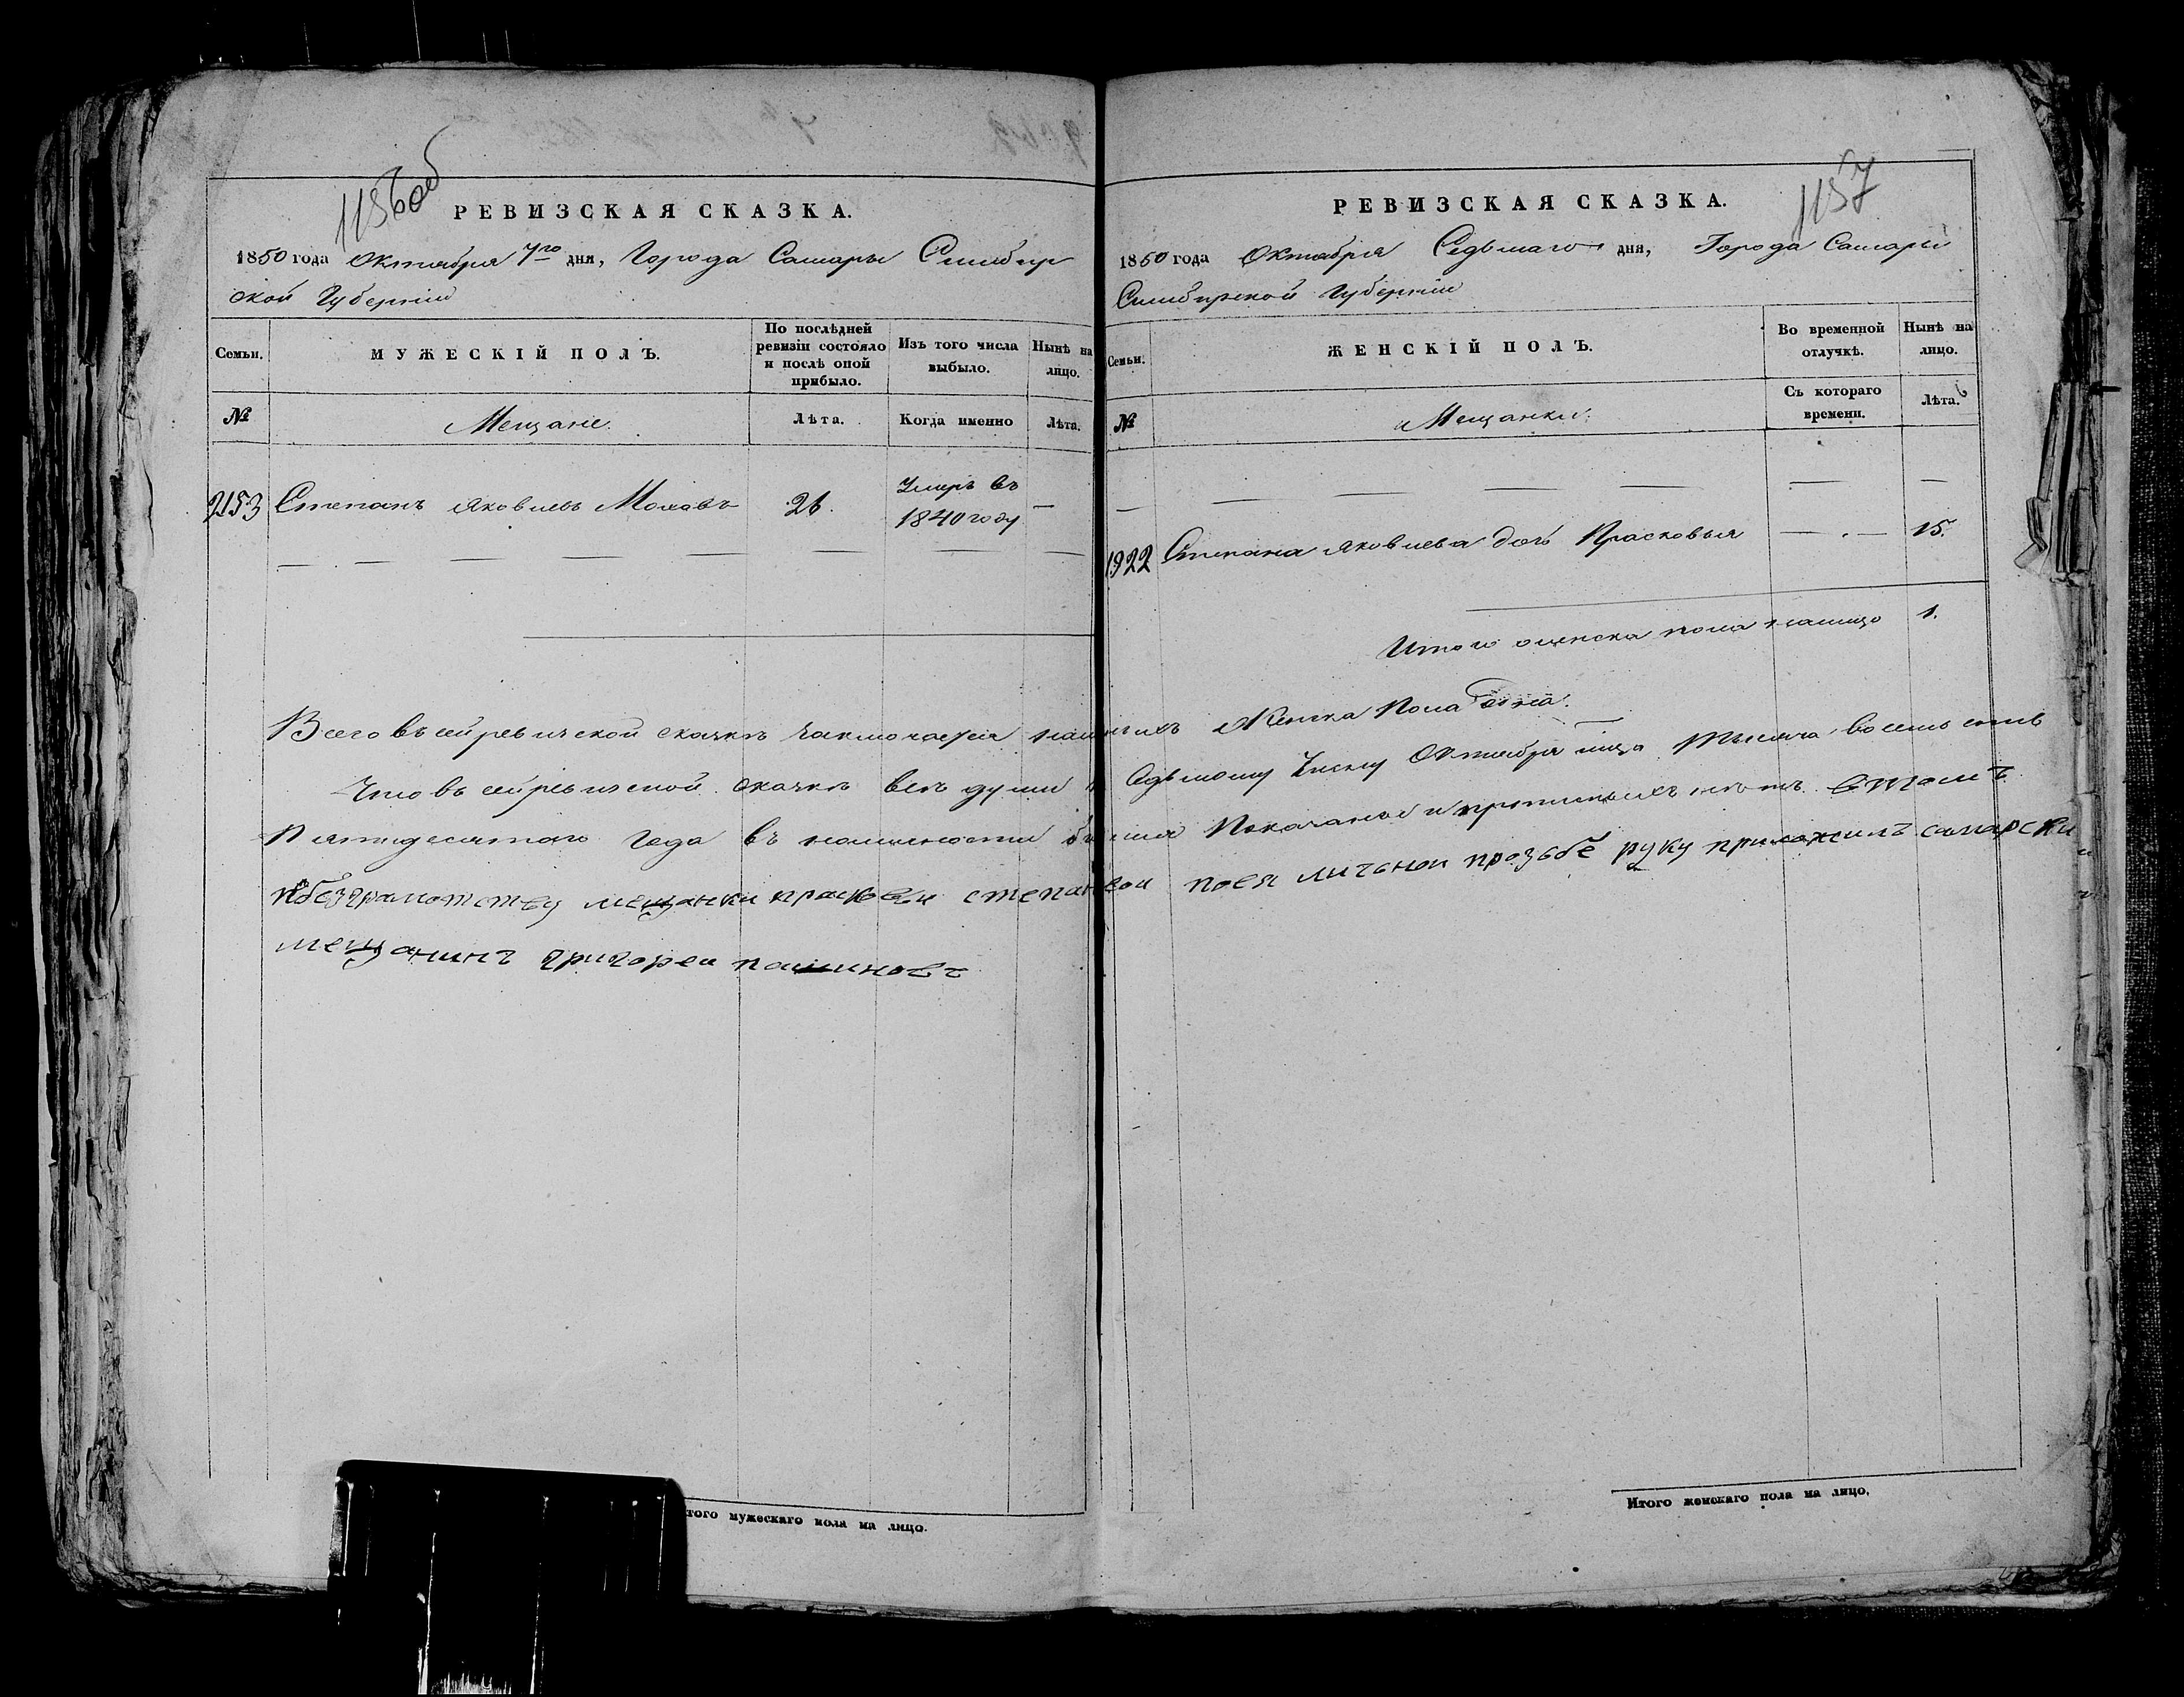 1156об
РЕВИЗСКАЯ СКАЗКА.
1850 года Октября 7го дня, Города Самары Симбир
ской Губерніи
Семьи.
МУЖЕСКІЙ ПОЛЪ.
По послѣдней
ревизіи состояло
и послѣ оной
прибыло.
Изъ того числа
выбыло.
Нынѣ на
лицо.
№
Мещане.
Лѣта.
Когда именно
Лѣта.
2153 Степанъ Яковлевъ 26. Умеръ въ
1840 году
Всего въ сей ревизской сказкѣ заключается
Что въ сей ревизской сказкѣ всѣ души
Пятидесятаго Года въ наличности
побезграмотству мещанки степан
мещанинъ григореи
того мужескаго пола на лицо.
1157
РЕВИЗСКАЯ СКАЗКА.
1850 года Октября Седьмаго дня, Города Самары
Симбирской Губерніи
Семьи.
ЖЕНСКІЙ ПОЛЪ.
Во временной
отлучкѣ.
Нынѣ на
лицо.
№
Мещанки.
Съ котораго
времени.
Лѣта.
1922 Степана Яковлева дочь Прасковья 15.
Итого женска пола налицо 1.
Женска Пола одна.
Седьмому Числу Октября мца Тысяча восемь сотъ
Показаны и прописныхъ нѣтъ втомъ
поея личьнои прозьбе руку приложилъ самарски
Итого женскаго пола на лицо,